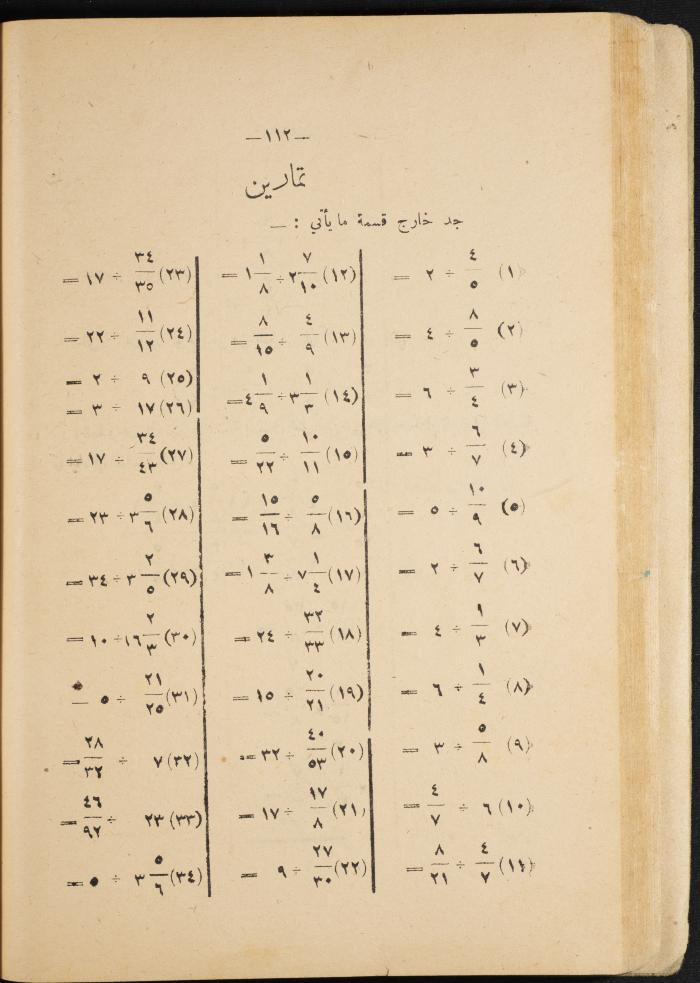 —١١٢—
تمارين
جد خارج قسمة ما يأتي : —
(١) ٤/٥ ÷ ٢ =
(٢) ٨/٥ ÷ ٤ =
(٣) ٣/٤ ÷ ٦ =
(٤) ٦/٧ ÷ ٣ =
(٥) ١٠/٩ ÷ ٥ =
(٦) ٦/٧ ÷ ٢ =
(٧) ١/٣ ÷ ٤ =
(٨) ١/٤ ÷ ٦ =
(٩) ٥/٨ ÷ ٣ =
(١٠) ٦ ÷ ٤/٧ =
(١١) ٤/٧ ÷ ٨/٢١ =
(١٢) ٢ ٧/١٠ ÷ ١ ١/٨ =
(١٣) ٤/٩ ÷ ٨/١٥ =
(١٤) ٣ ١/٣ ÷ ٤ ١/٩ =
(١٥) ١٠/١١ ÷ ٥/٢٢ =
(١٦) ٥/٨ ÷ ١٥/١٦ =
(١٧) ٧ ١/٤ ÷ ١ ٣/٨ =
(١٨) ٣٢/٣٣ ÷ ٢٤ =
(١٩) ٢٠/٢١ ÷ ١٥ =
(٢٠) ٤٠/٥٣ ÷ ٣٢ =
(٢١) ١٧/٨ ÷ ١٧ =
(٢٢) ٢٧/٣٠ ÷ ٩ =
(٢٣) ٣٤/٣٥ ÷ ١٧ =
(٢٤) ١١/١٢ ÷ ٢٢ =
(٢٥) ٩ ÷ ٢ =
(٢٦) ١٧ ÷ ٣ =
(٢٧) ٣٤/٤٣ ÷ ١٧ =
(٢٨) ٣ ٥/٦ ÷ ٢٣ =
(٢٩) ٣ ٢/٥ ÷ ٣٤ =
(٣٠) ١٦ ٢/٣ ÷ ١٠ =
(٣١) ٢١/٢٥ ÷ ٥ =
(٣٢) ٧ ÷ ٢٨/٣٢ =
(٣٣) ٢٣ ÷ ٤٦/٩٢ =
(٣٤) ٣ ٥/٦ ÷ ٥ =